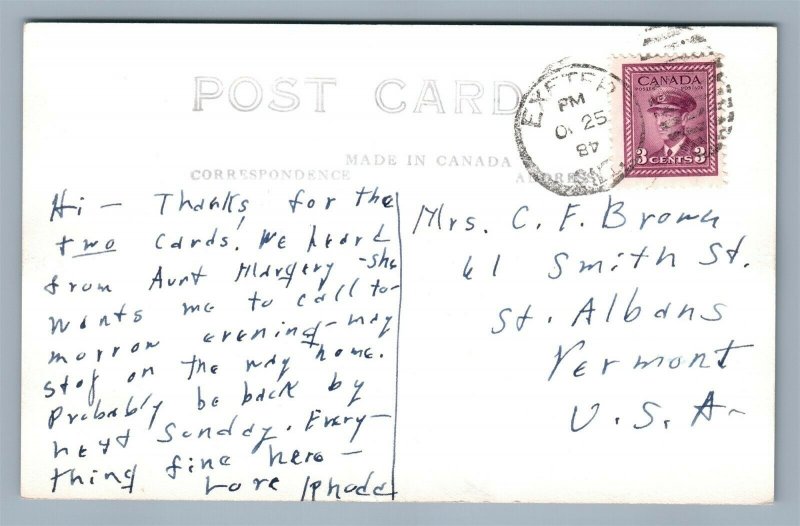 POST CARD
MADE IN CANADA
CORRESPONDENCE
EXETER
PM
25
CANADA
POSTES POSTAGE
3 CENTS 3
Hi - Thanks for the
two cards! We heard
from Aunt Margery - she
wants me to call to-
morrow evening - may
stop on the way home.
Probably be back by
next Sunday. Every-
thing fine here -
Love Rhoda
Mrs. C. F. Brown
61 Smith St.
St. Albans
Vermont
U.S.A-